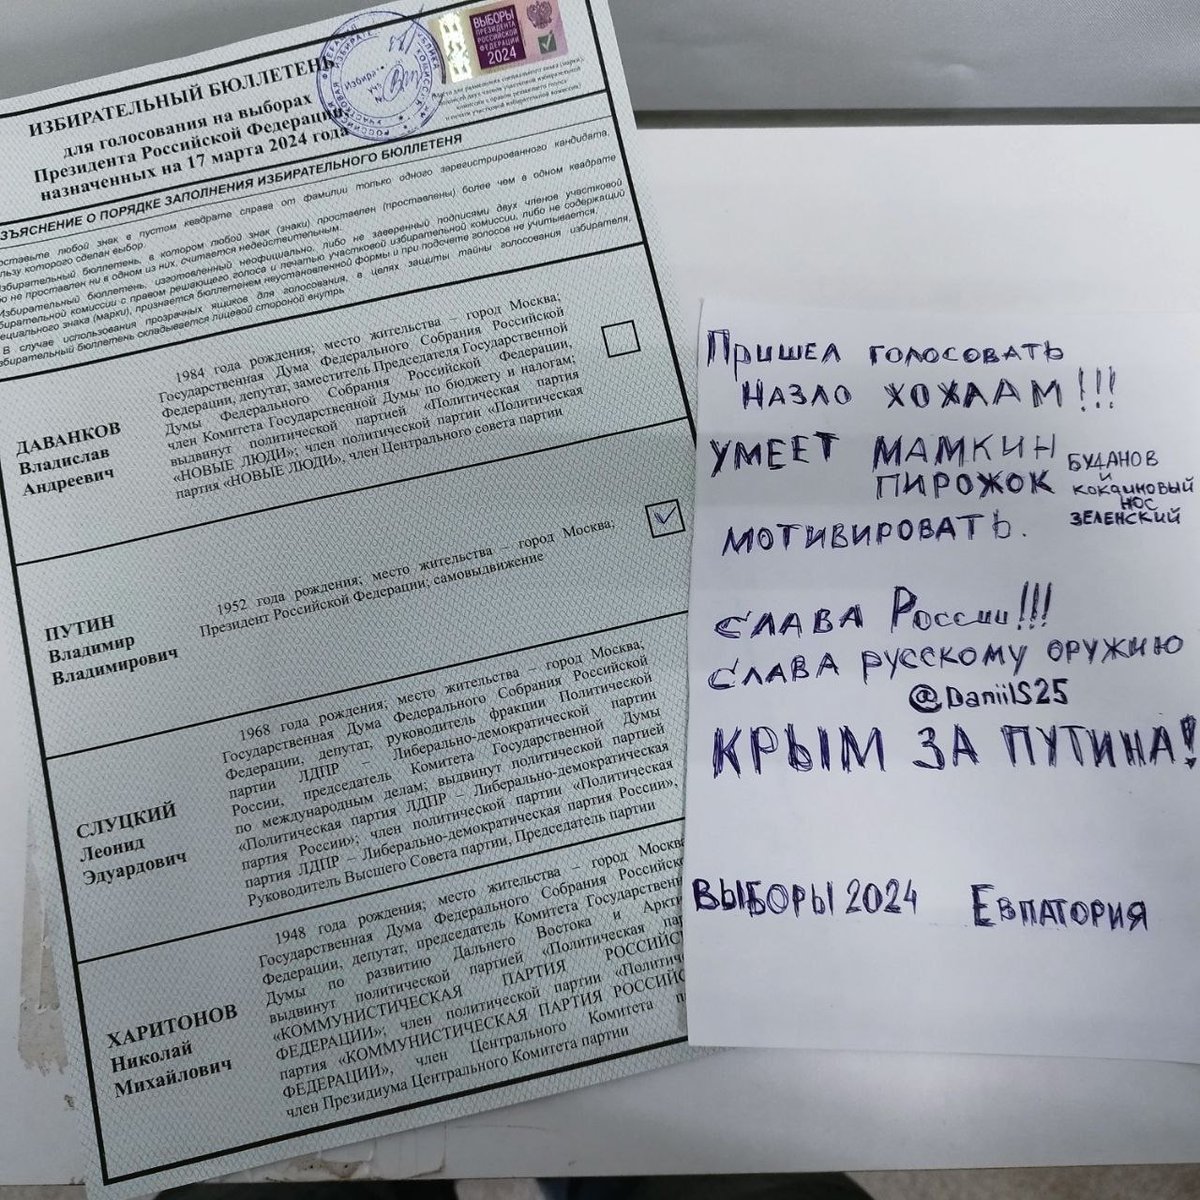 ИЗБИРАТЕЛЬНЫЙ БЮЛЛЕТЕНЬ
для голосования на выборах
Президента Российской Федерации,
назначенных на 17 марта 2024 года
ВЫБОРЫ
ПРЕЗИДЕНТА
РОССИЙСКОЙ
ФЕДЕРАЦИИ
2024
ЗЪЯСНЕНИЕ О ПОРЯДКЕ ЗАПОЛНЕНИЯ ИЗБИРАТЕЛЬНОГО БЮЛЛЕТЕНЯ
оставьте любой знак в пустом квадрате справа от фамилии только одного зарегистрированного кандидата,
льзу которого сделан выбор.
Избирательный бюллетень, в котором любой знак (знаки) проставлен (проставлены) более чем в одном квадрате
бо не проставлен ни в одном из них, считается недействительным.
Избирательный бюллетень, изготовленный неофициально, либо не заверенный подписями двух членов участковой
бирательной комиссии с правом решающего голоса и печатью участковой избирательной комиссии, либо не содержащий
ециального знака (марки), признается бюллетенем неустановленной формы и при подсчете голосов не учитывается.
В случае использования прозрачных ящиков для голосования, в целях защиты тайны голосования избирателя,
збирательный бюллетень складывается лицевой стороной внутрь
ДАВАНКОВ
Владислав
Андреевич
1984 года рождения; место жительства – город Москва;
Государственная Дума Федерального Собрания Российской
Федерации, депутат, заместитель Председателя Государственной
Думы Федерального Собрания Российской Федерации,
член Комитета Государственной Думы по бюджету и налогам;
выдвинут политической партией «Политическая партия
«НОВЫЕ ЛЮДИ»; член политической партии «Политическая
партия «НОВЫЕ ЛЮДИ», член Центрального совета партии
ПУТИН
Владимир
Владимирович
1952 года рождения; место жительства – город Москва;
Президент Российской Федерации; самовыдвижение
СЛУЦКИЙ
Леонид
Эдуардович
1968 года рождения; место жительства – город Москва;
Государственная Дума Федерального Собрания Российской
Федерации, депутат, руководитель фракции Политической
партии ЛДПР – Либерально-демократической партии
России, председатель Комитета Государственной Думы
по международным делам; выдвинут политической партией
«Политическая партия ЛДПР – Либерально-демократическая
партия России»; член политической партии «Политическая
партия ЛДПР – Либерально-демократическая партия России»,
Руководитель Высшего Совета партии, Председатель партии
ХАРИТОНОВ
Николай
Михайлович
1948 года рождения; место жительства – город Москва
Государственная Дума Федерального Собрания Российско
Федерации, депутат, председатель Комитета Государственн
Думы по развитию Дальнего Востока и Аркти
выдвинут политической партией «Политическая пар
«КОММУНИСТИЧЕСКАЯ ПАРТИЯ РОССИЙС
ФЕДЕРАЦИИ»; член политической партии «Политич
партия «КОММУНИСТИЧЕСКАЯ ПАРТИЯ РОССИЙС
ФЕДЕРАЦИИ», член Центрального Комитета п
член Президиума Центрального Комитета партии
Пришел голосовать
назло хохлам!!!
УМЕЕТ МАМКИН
ПИРОЖОК
БУДАНОВ
и
кокаиновый
нос
ЗЕЛЕНСКИЙ
МОТИВИРОВАТЬ.
СЛАВА России!!!
СЛАВА русскому оружию
@DaniilS25
КРЫМ ЗА ПУТИНА!
ВЫБОРЫ 2024 ЕВПАТОРИЯ